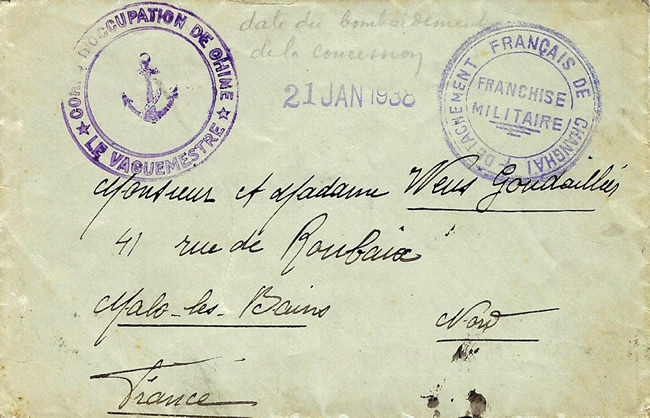 date du bombardement
de la concession
CORPS D'OCCUPATION DE CHINE
★ LE VAGUEMESTRE ★
21 JAN 1938
DETACHEMENT FRANÇAIS DE CHANGHAI
FRANCHISE
MILITAIRE
Monsieur et Madame Wens Goudaillier
41 rue de Roubaix
Malo-les-Bains
Nord
France